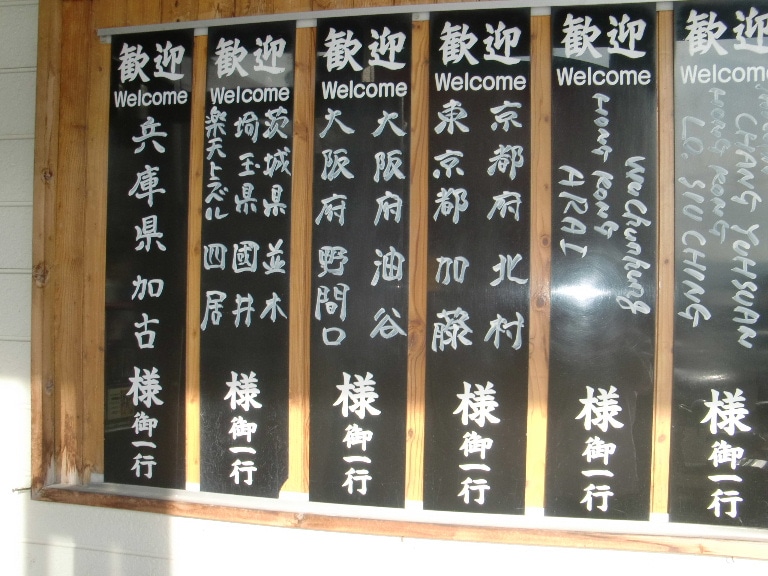 歓迎
Welcome
兵庫県 加古
様
御一行
歓迎
Welcome
茨城県 並木
埼玉県 國井
楽天トラベル 四居
様
御一行
歓迎
Welcome
大阪府 油谷
大阪府 野間口
様
御一行
歓迎
Welcome
京都府 北村
東京都 加藤
様
御一行
歓迎
Welcome
Wu Chunkung
HONG KONG
ARAI
様
御一行
歓迎
Welcome
CHANG YUHSUAN
HONG KONG
LO. SIU CHING
様
御一行